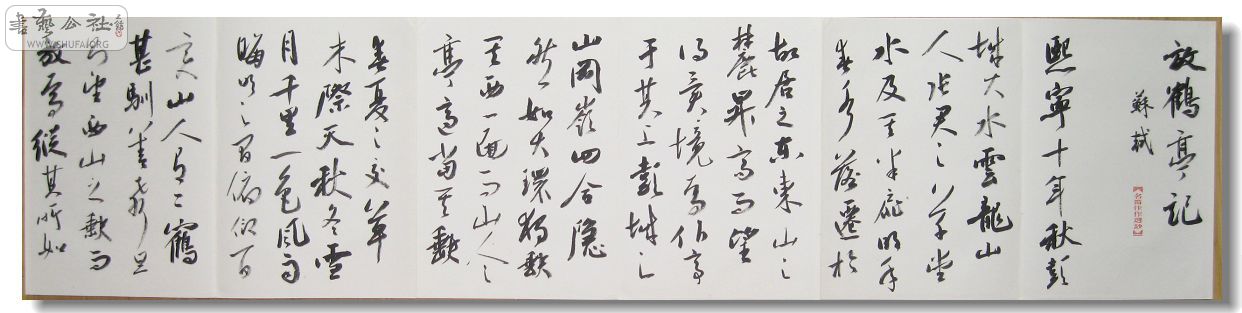 放鶴亭記
蘇軾
熙寧十年秋彭
城大水雲龍山
人張君之草堂
水及其半扉明年
春水落遷於
故居之東東山之
麓昇高而望
得異境焉作亭
于其上彭城之
山岡嶺四合隱
然如大環獨缺
其西一面而山人之
亭適當其缺
春夏之交草
木際天秋冬雪
月千里一色風雨
晦明之間俯仰百
變山人有二鶴
甚馴善飛旦
則望西山之缺而
放焉縱其所如
書藝公社
WWW.SHUFA.ORG